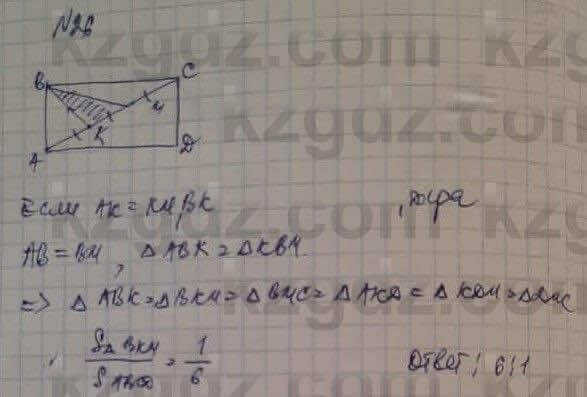 N26
B
C
M
K
A
D
Если AK = KM, BK
, тогда
AB = BM, △ABK = △KBM.
=> △ABK = △BKM = △BMC = △AKD = △KDM = △DMC
S△BKM / SABCD = 1/6
Ответ: 6:1
kzgdz.com